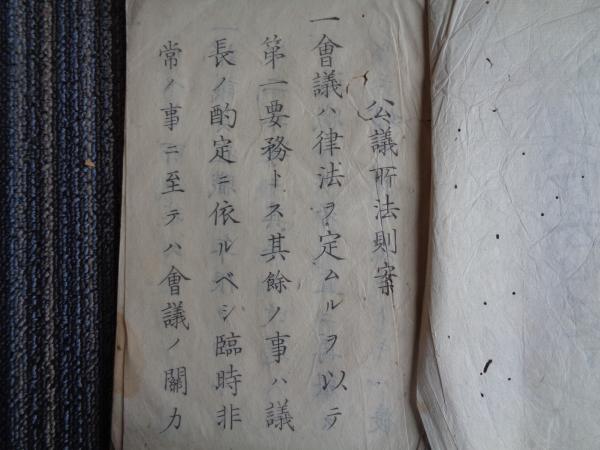 公議所法則案
一會議ハ律法ヲ定ムルヲ以テ
第一要務トス其餘ノ事ハ議
長ノ酌定ニ依ルベシ臨時非
常ノ事ニ至テハ會議ノ關カ